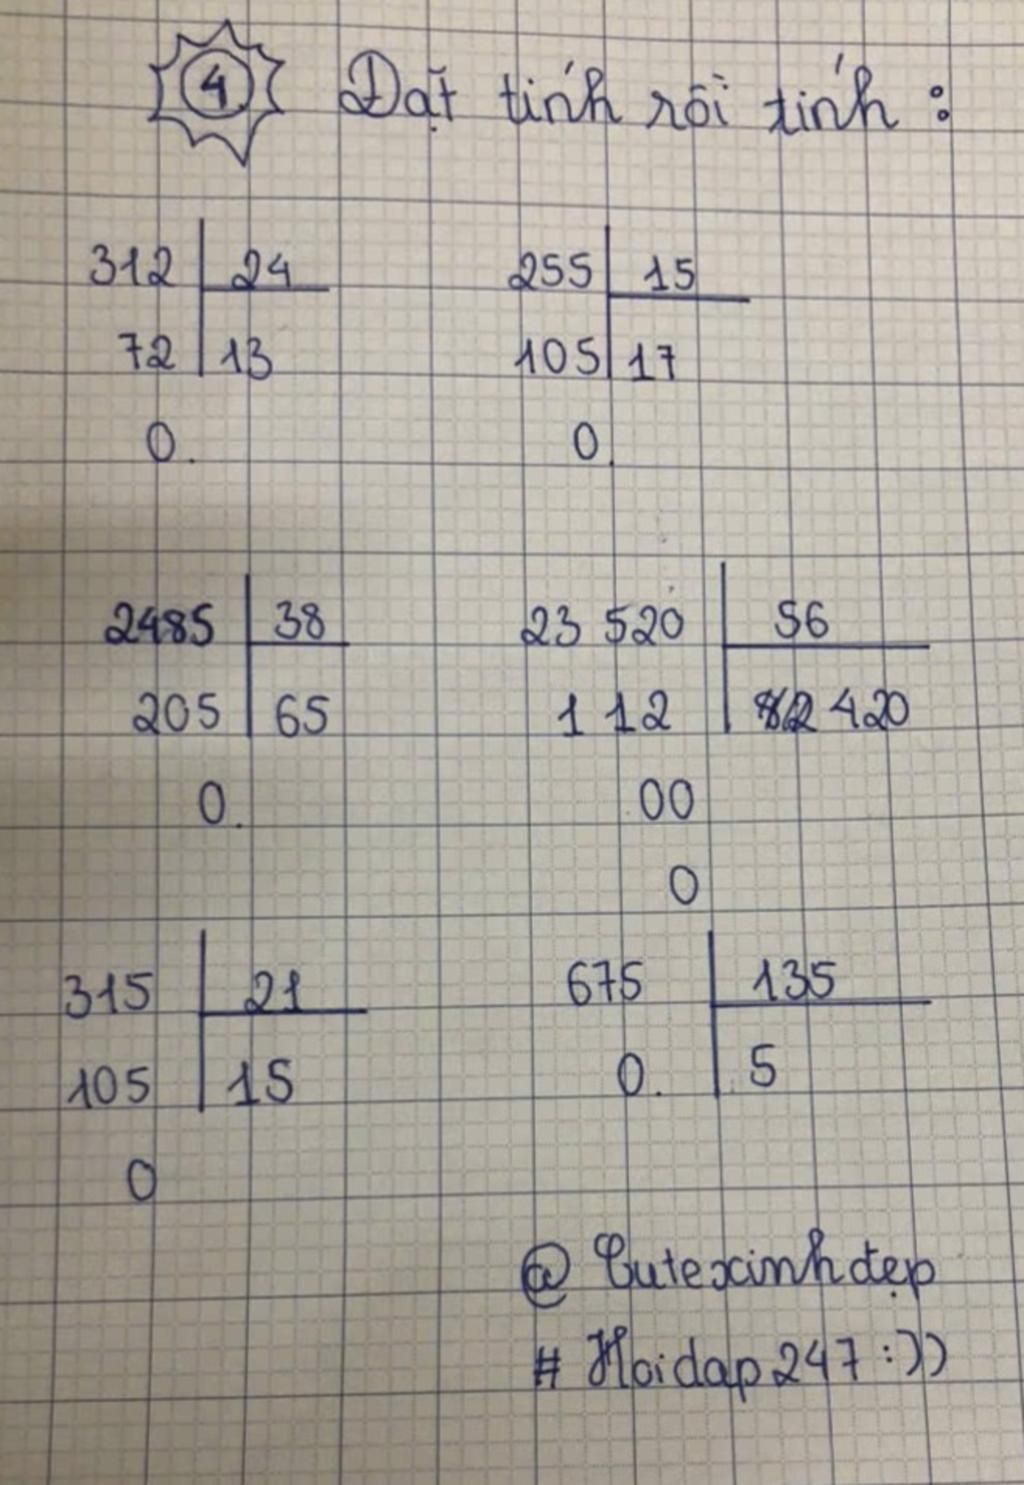 4 Đặt tính rồi tính :
312 24 255 15
72 13 105 17
0. 0
2485 38 23 520 56
205 65 1 12 420
0. 00
0
315 21 675 135
105 15 0. 5
0
@ Cutexinhđẹp
# Hoidap247 :))